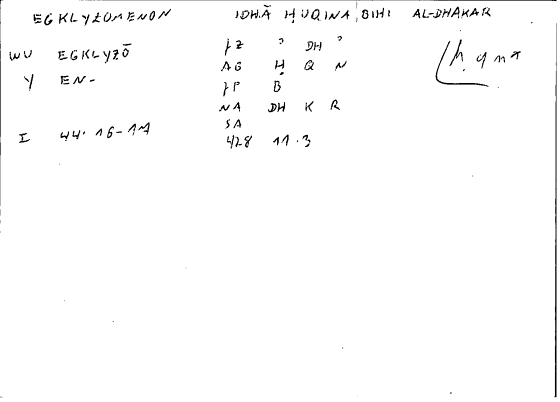 EGKLYZOMENON IDHĀ ḤUQINA BIHI AL-DHAKAR
WU EGKLYZŌ JZ ʾ DH ʾ ḥqnx
Y EN- AG Ḥ Q N
JP B
NA DH K R
SA
I 44. 16-17 428 11.3